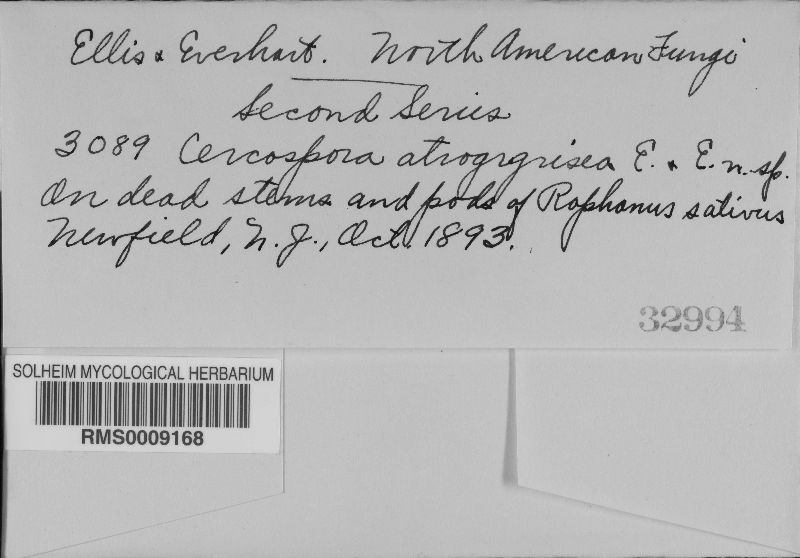 Ellis & Everhart. North American Fungi
Second Series
3089 Cercospora atrogrgrisea E. & E. n. sp.
On dead stems and pods of Raphanus sativus
Newfield, N. J., Oct. 1893.
32994
SOLHEIM MYCOLOGICAL HERBARIUM
RMS0009168